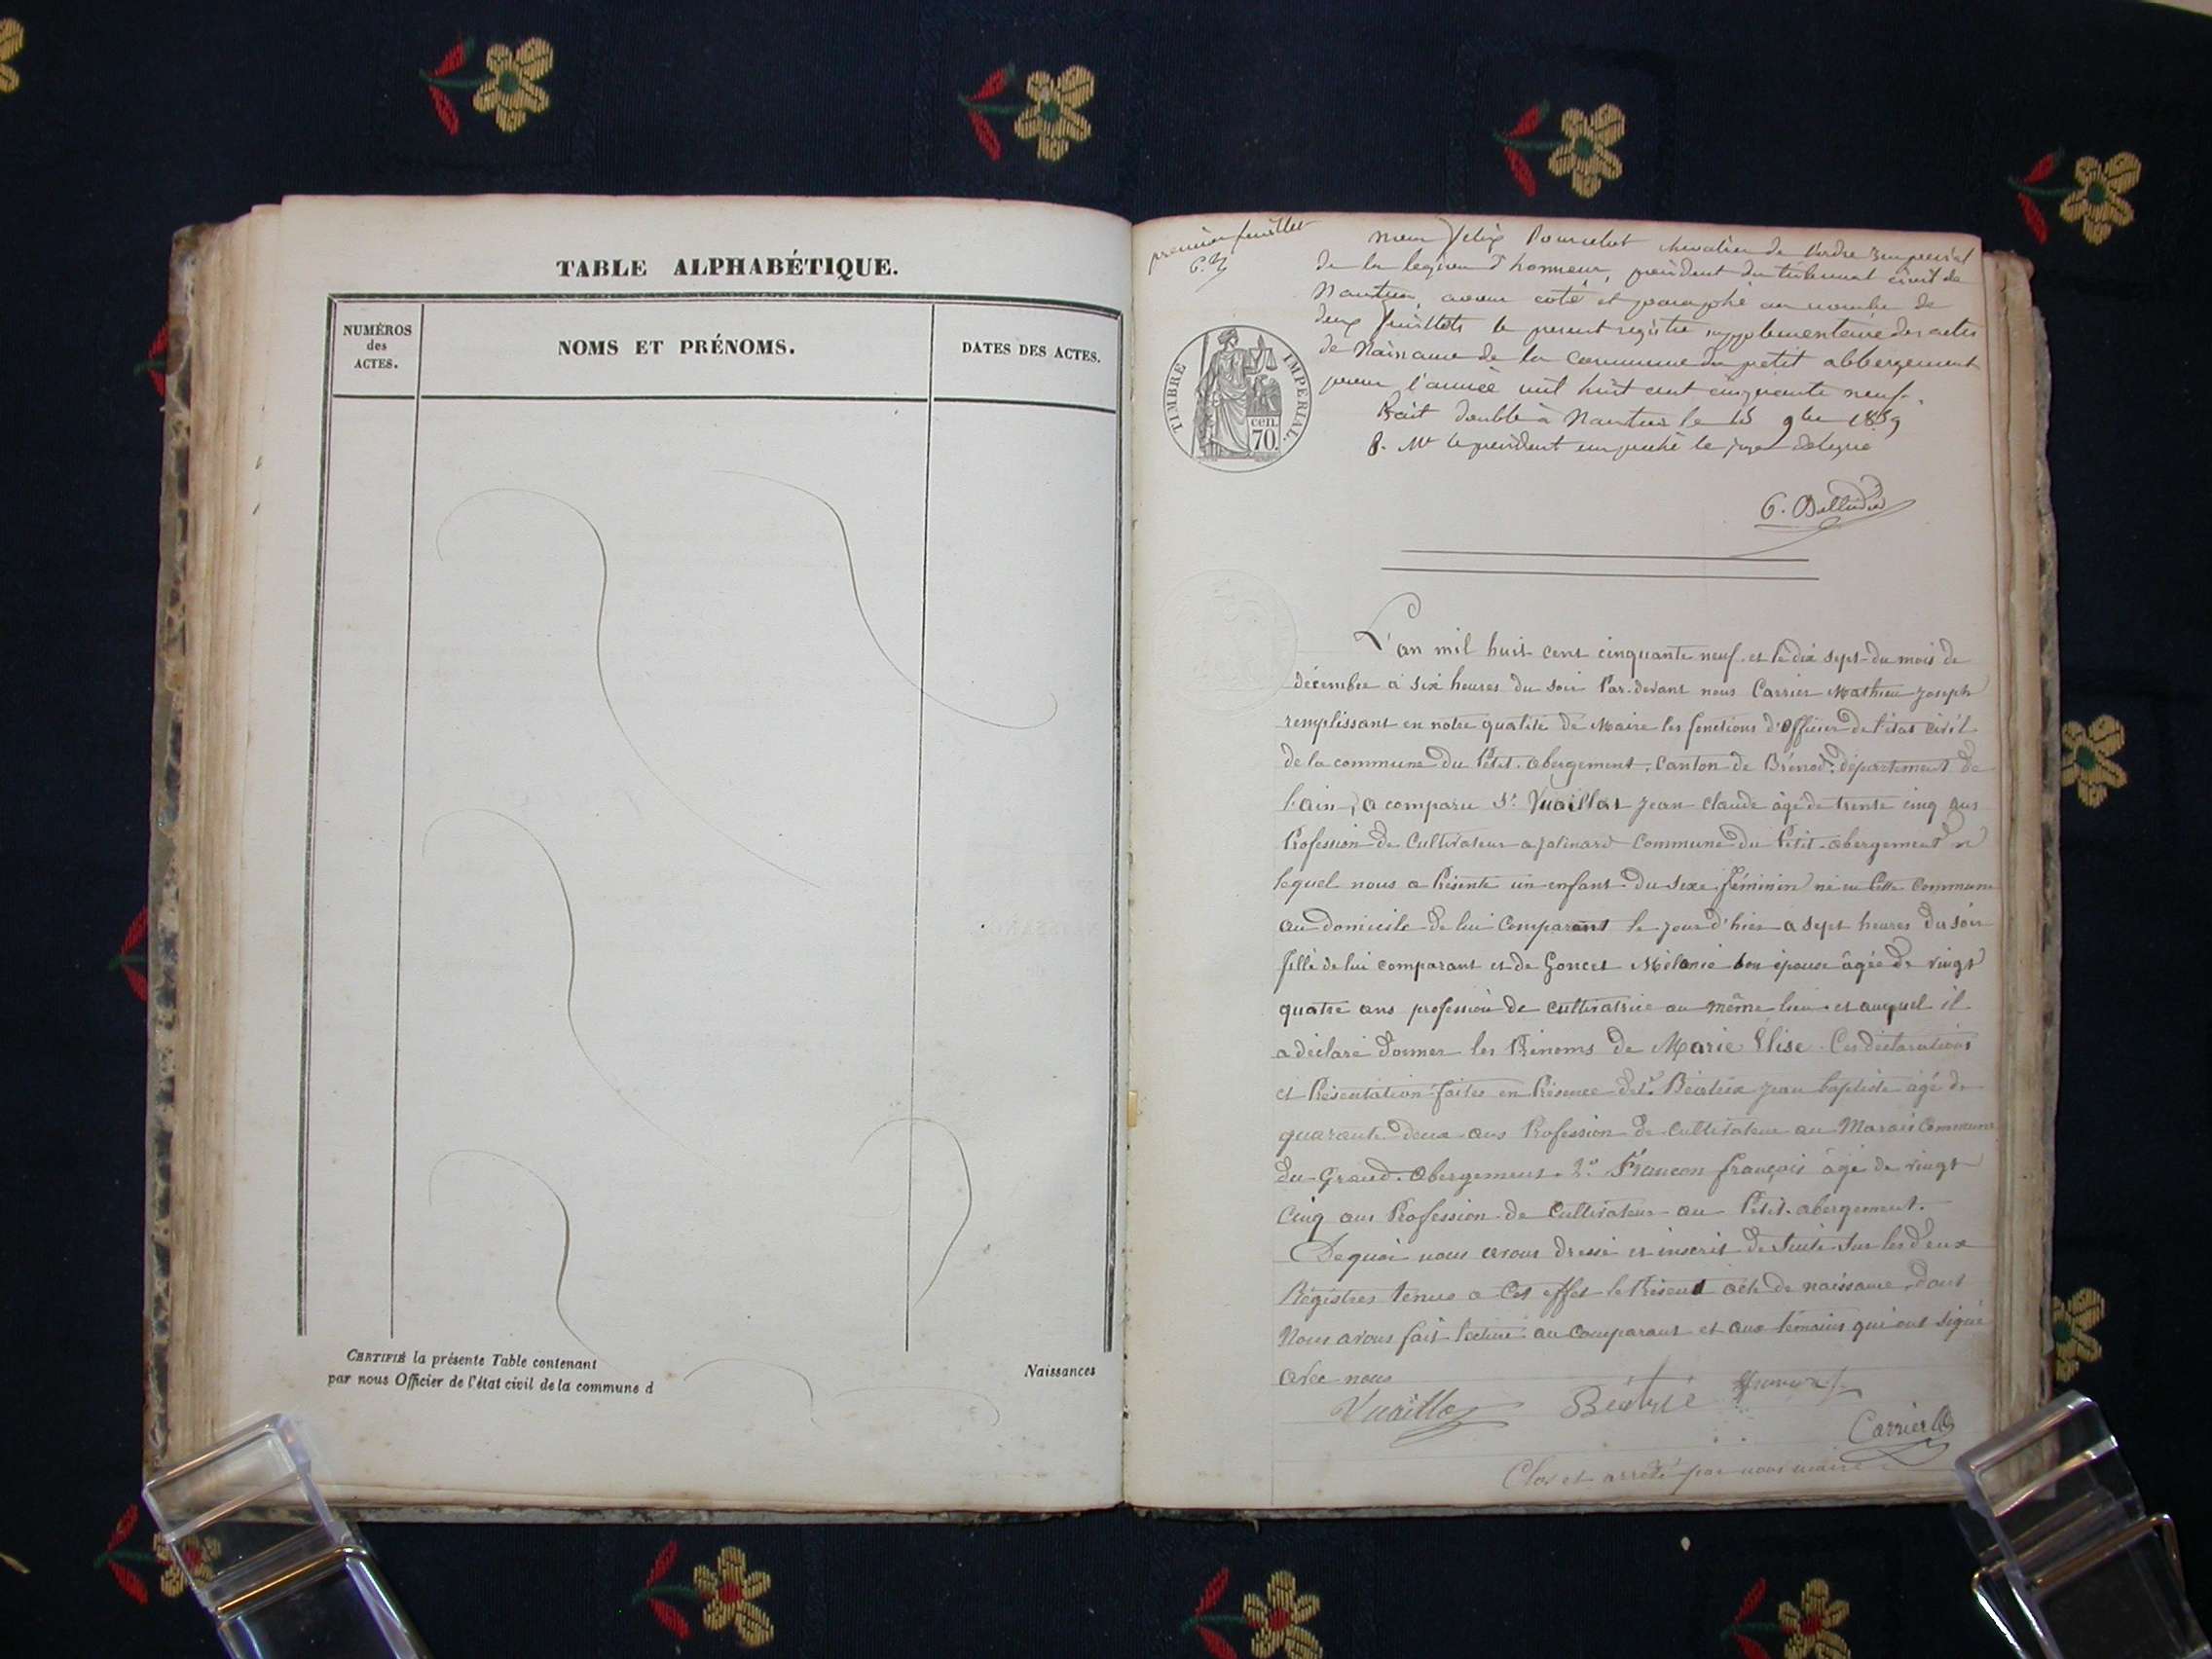 TABLE ALPHABÉTIQUE.
NUMÉROS
des
ACTES.
NOMS ET PRÉNOMS.
DATES DES ACTES.
CERTIFIÉ la présente Table contenant
Naissances
par nous Officier de l'état civil de la commune d
premier feuillet
nous Félix chevalier de l'ordre impérial
de la légion d'honneur, président du tribunal civil de
Nantua, avons coté et paraphé au nombre de
deux feuillets le present registre supplementaire des actes
de Naissance de la commune du petit abbergement
pour l'année mil huit cent cinquante neuf.
Fait double à Nantua le 15 9bre 1859
P. Mr le président empeché le juge délégué
TIMBRE IMPERIAL.
cen.
70.
L'an mil huit cent cinquante neuf et le dix sept du mois de
décembre à six heures du soir Par-devant nous Carrier Mathieu Joseph
remplissant en notre qualité de Maire les fonctions d'Officier de l'état civil
de la commune du Petit-abergement, Canton de Brénod, département de
l'ain, a comparu Sr Vuaillat Jean Claude âgé de trente cinq ans
Profession de Cultivateur a Jalinard Commune du Petit-abergement
lequel nous a Présenté un enfant du Sexe féminin né en Cette Commune
au domicile de lui Comparant le jour d'hier a sept heures du soir
fille de lui comparant et de Goncet Mélanie son épouse âgée de vingt
quatre ans profession de cultivatrice au même lieu et auquel il
a déclaré donner les Prénoms de Marie Elise. Ces déclarations
et Présentation faites en Présence de 1º Béatrix Jean baptiste âgé de
quarante deux ans Profession de Cultivateur au Marais Commune
du Grand-Abergement. 2º Francon françois âgé de vingt
Cinq ans Profession de Cultivateur au Petit-abergement.
De quoi nous avons dressé et inscrit de Suite Sur les deux
Régistres tenus a Cet effet le Présent acte de naissance, dont
Nous avons fait lecture au Comparant et aux témoins qui ont signé
avec nous
Vuaillat
Carrier
Clos et arrêté par nous maire